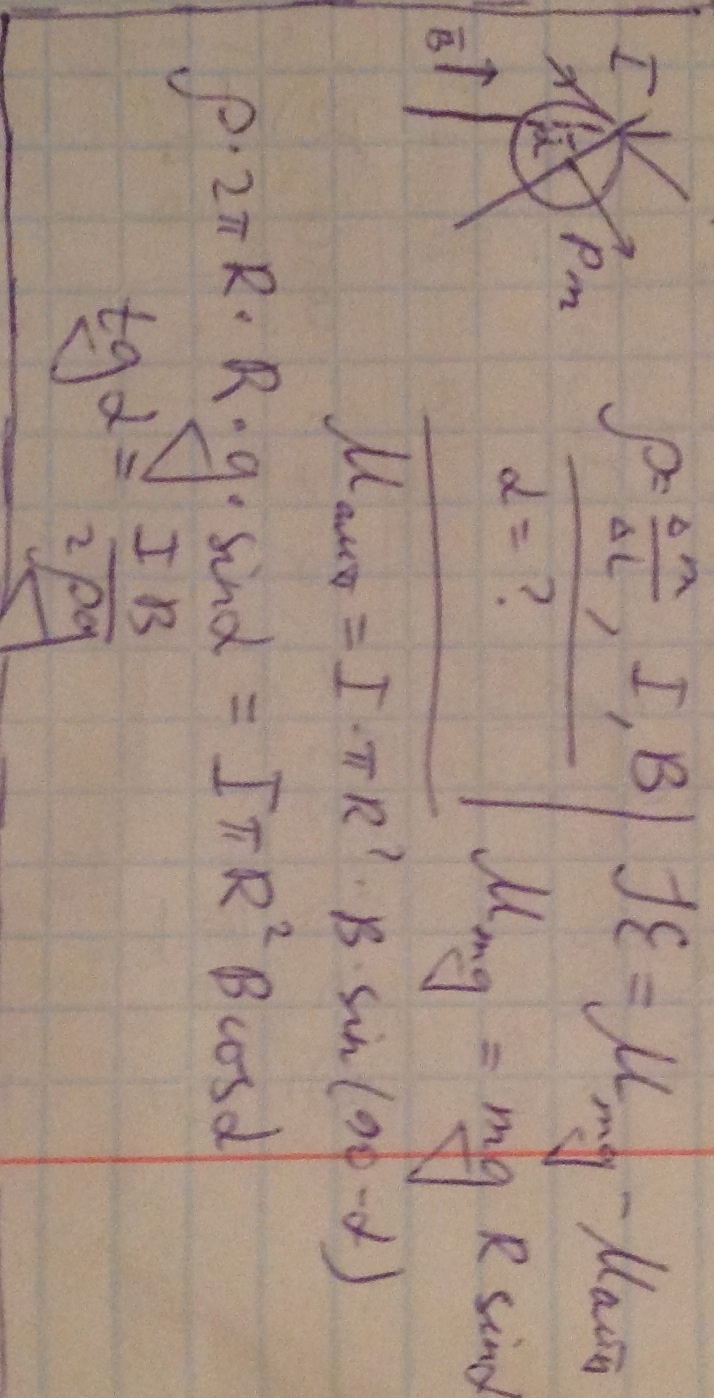 I
B̄
α
Pm
ρ = Δm/Δl, I, B
α = ?
Jε = Mmg − Mамп
Mmg = mg R sinα
Mамп = I · πR² · B · sin(90 − α)
ρ · 2πR · R · g · sinα = IπR²Bcosα
tgα = IB/2ρg